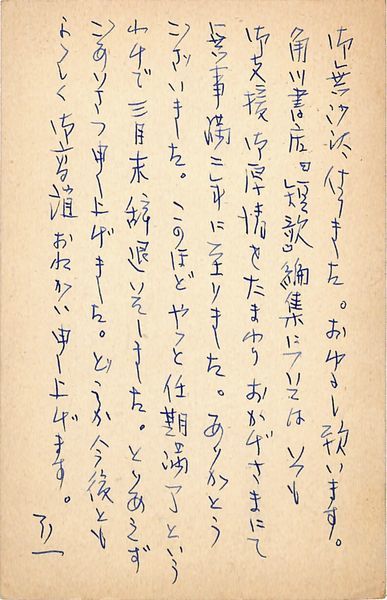 御無沙汰仕りました。おゆるし願います。
角川書店『短歌』編集については いつも
御支援 御厚情をたまわり おかげさまにて
無事満二年に至りました。ありがとう
ございました。このほど やっと任期満了という
わけで三月末辞退いたしました。とりあえず
ごあいさつ申し上げました。どうか今後とも
よろしく御音誼おねがい申し上げます。